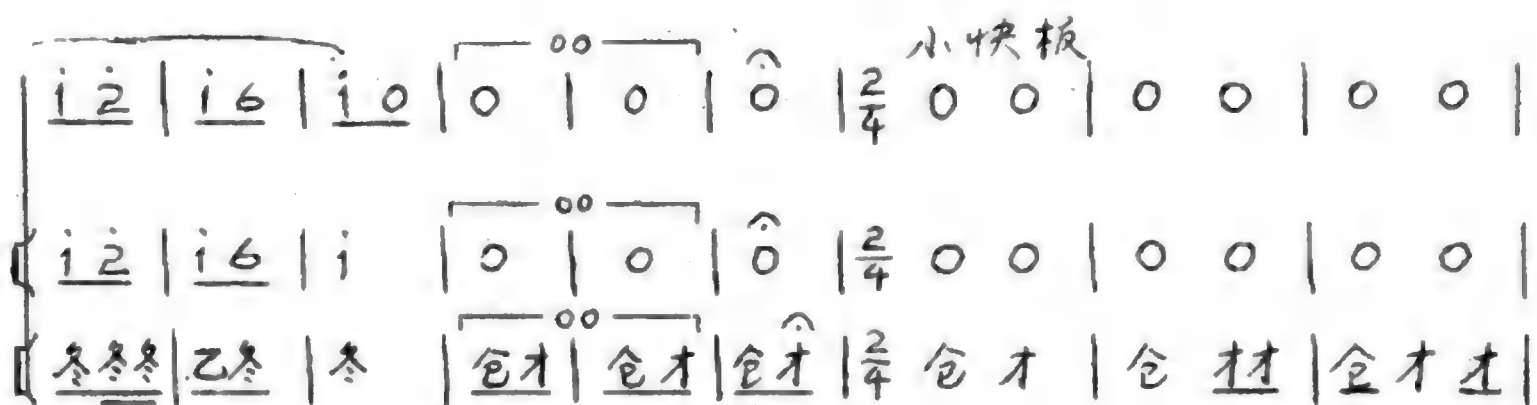 小快板
i̇ 2̇ | i̇ 6 | i̇ 0 | 0 | 0 | 0 | 2/4 0 0 | 0 0 | 0 0 |
i̇ 2̇ | i̇ 6 | i̇ | 0 | 0 | 0 | 2/4 0 0 | 0 0 | 0 0 |
冬冬冬 | 乙冬 | 冬 | 仓才 | 仓才 | 仓才 | 2/4 仓 才 | 仓 才才 | 仓 才 才 |